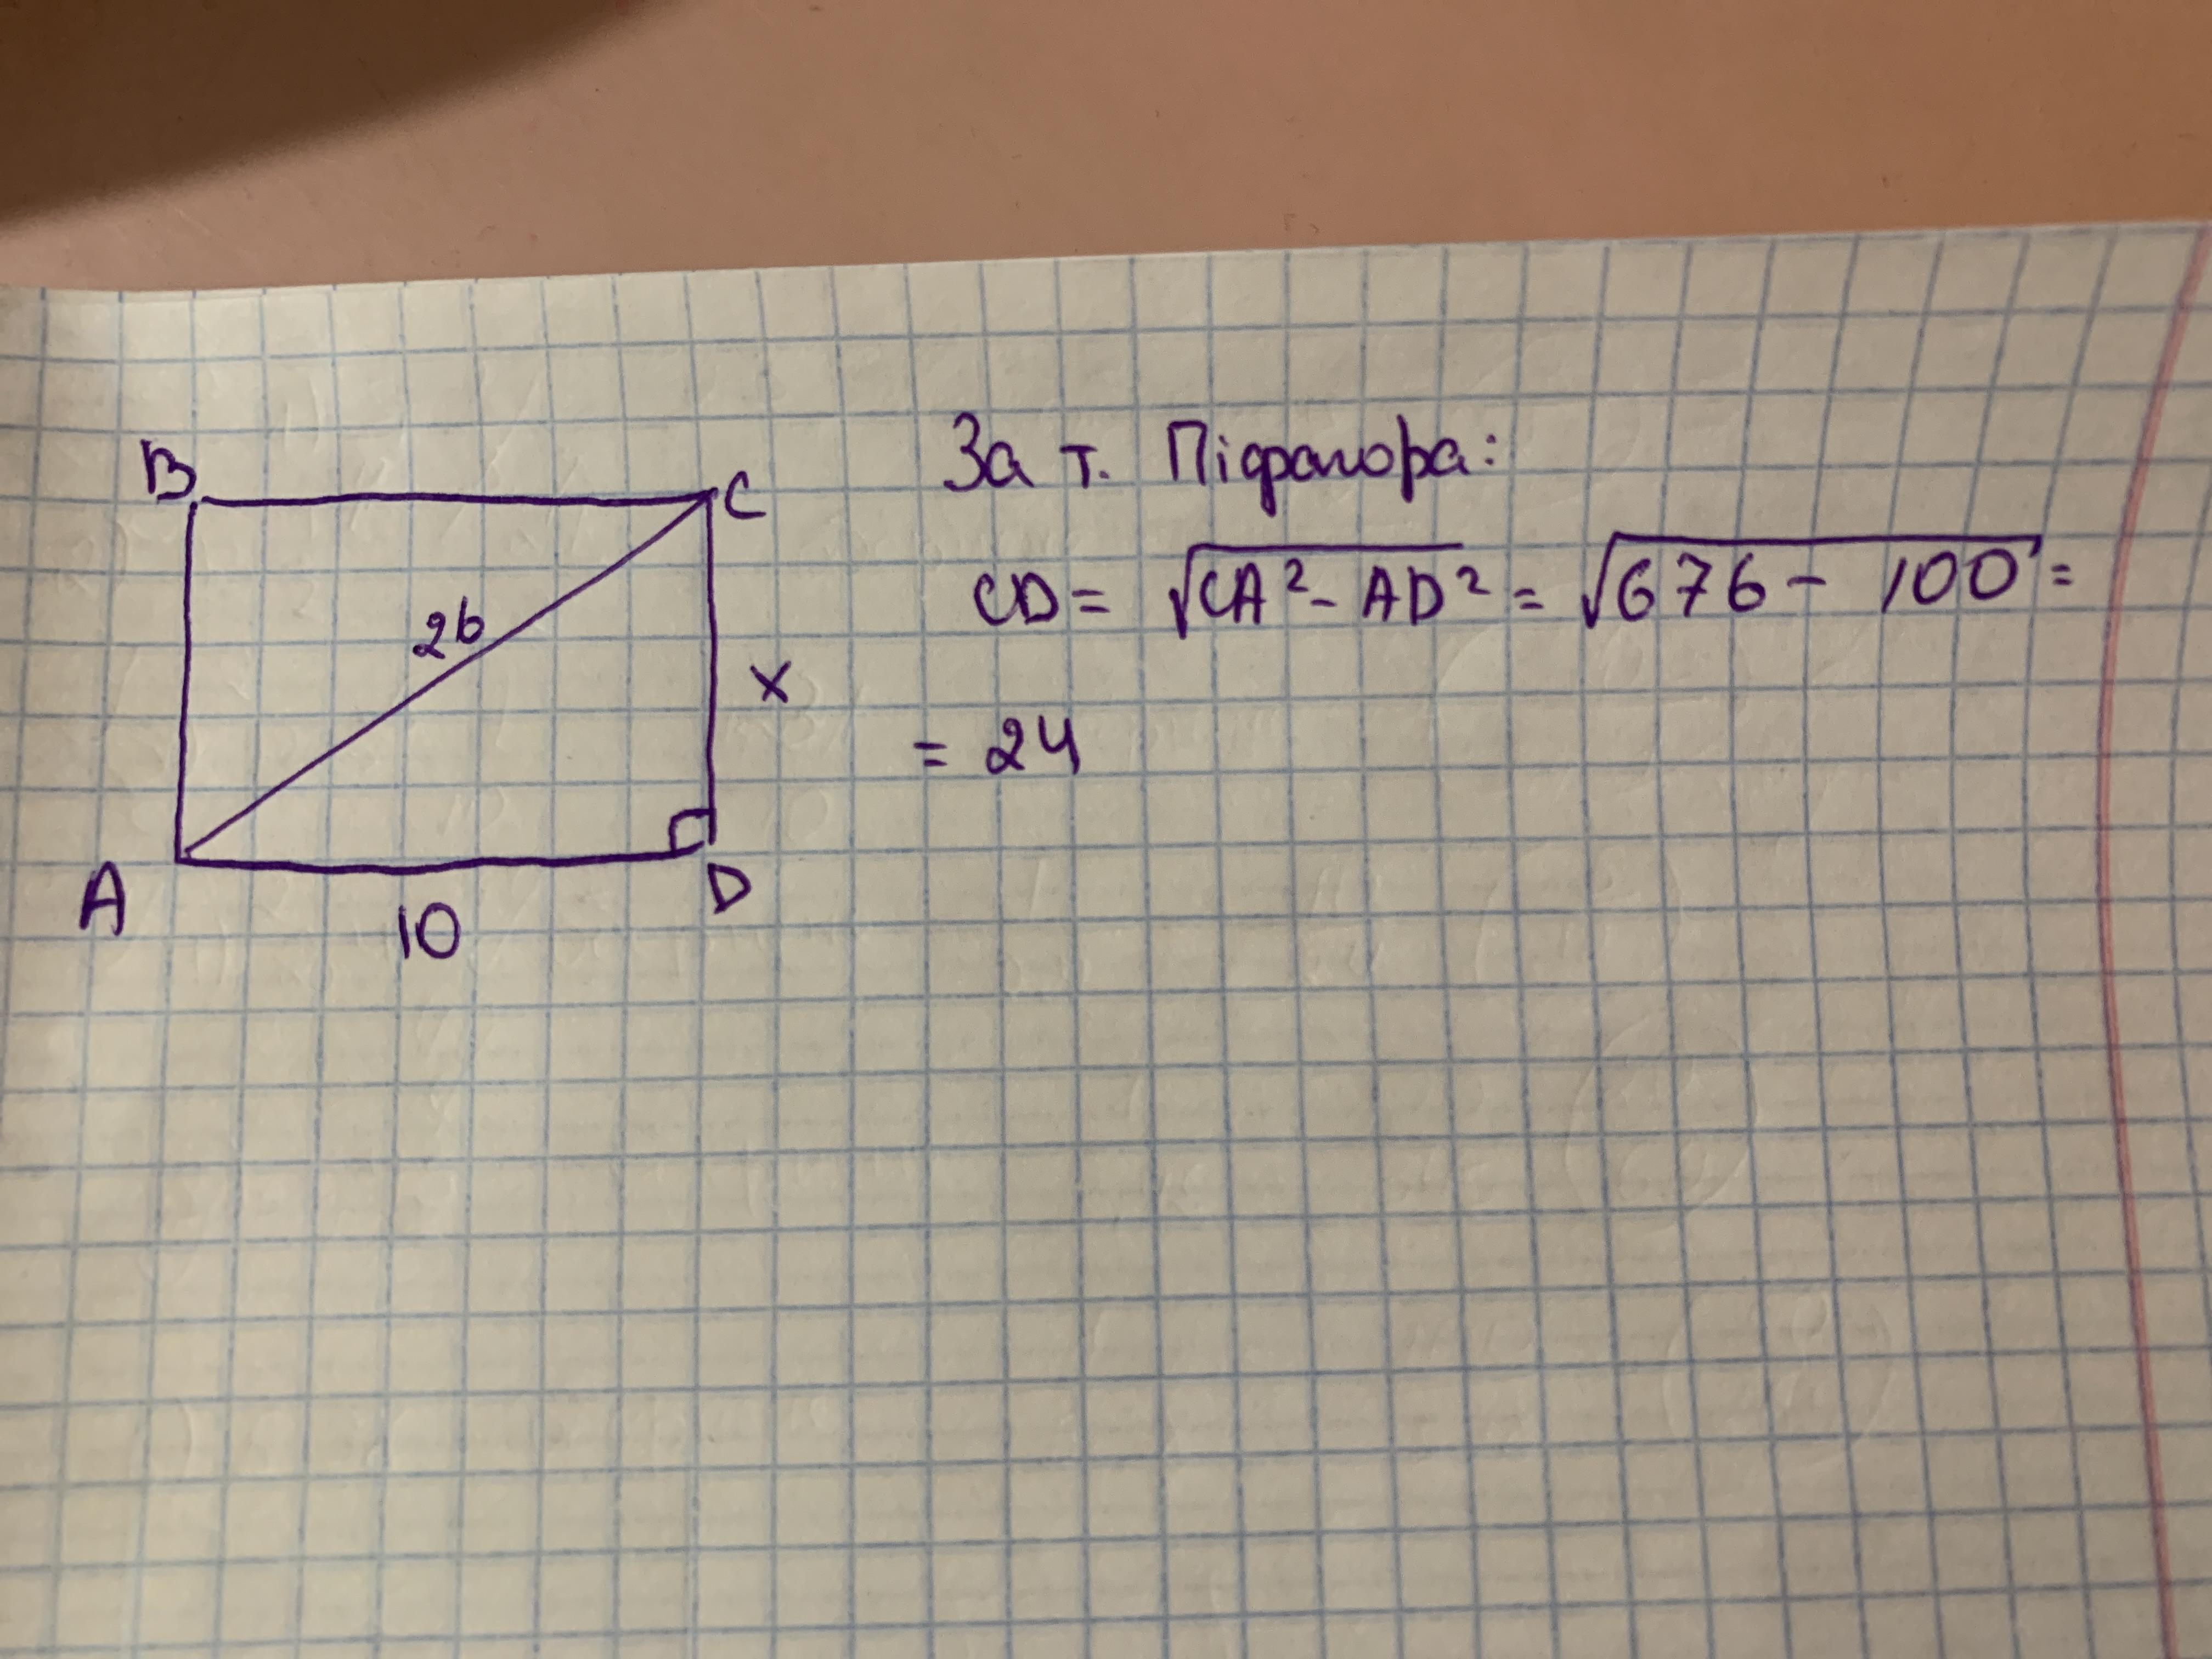 B
C
26
x
A
D
10
За т. Піфагора:
CD = √CA² - AD² = √676 - 100 =
= 24